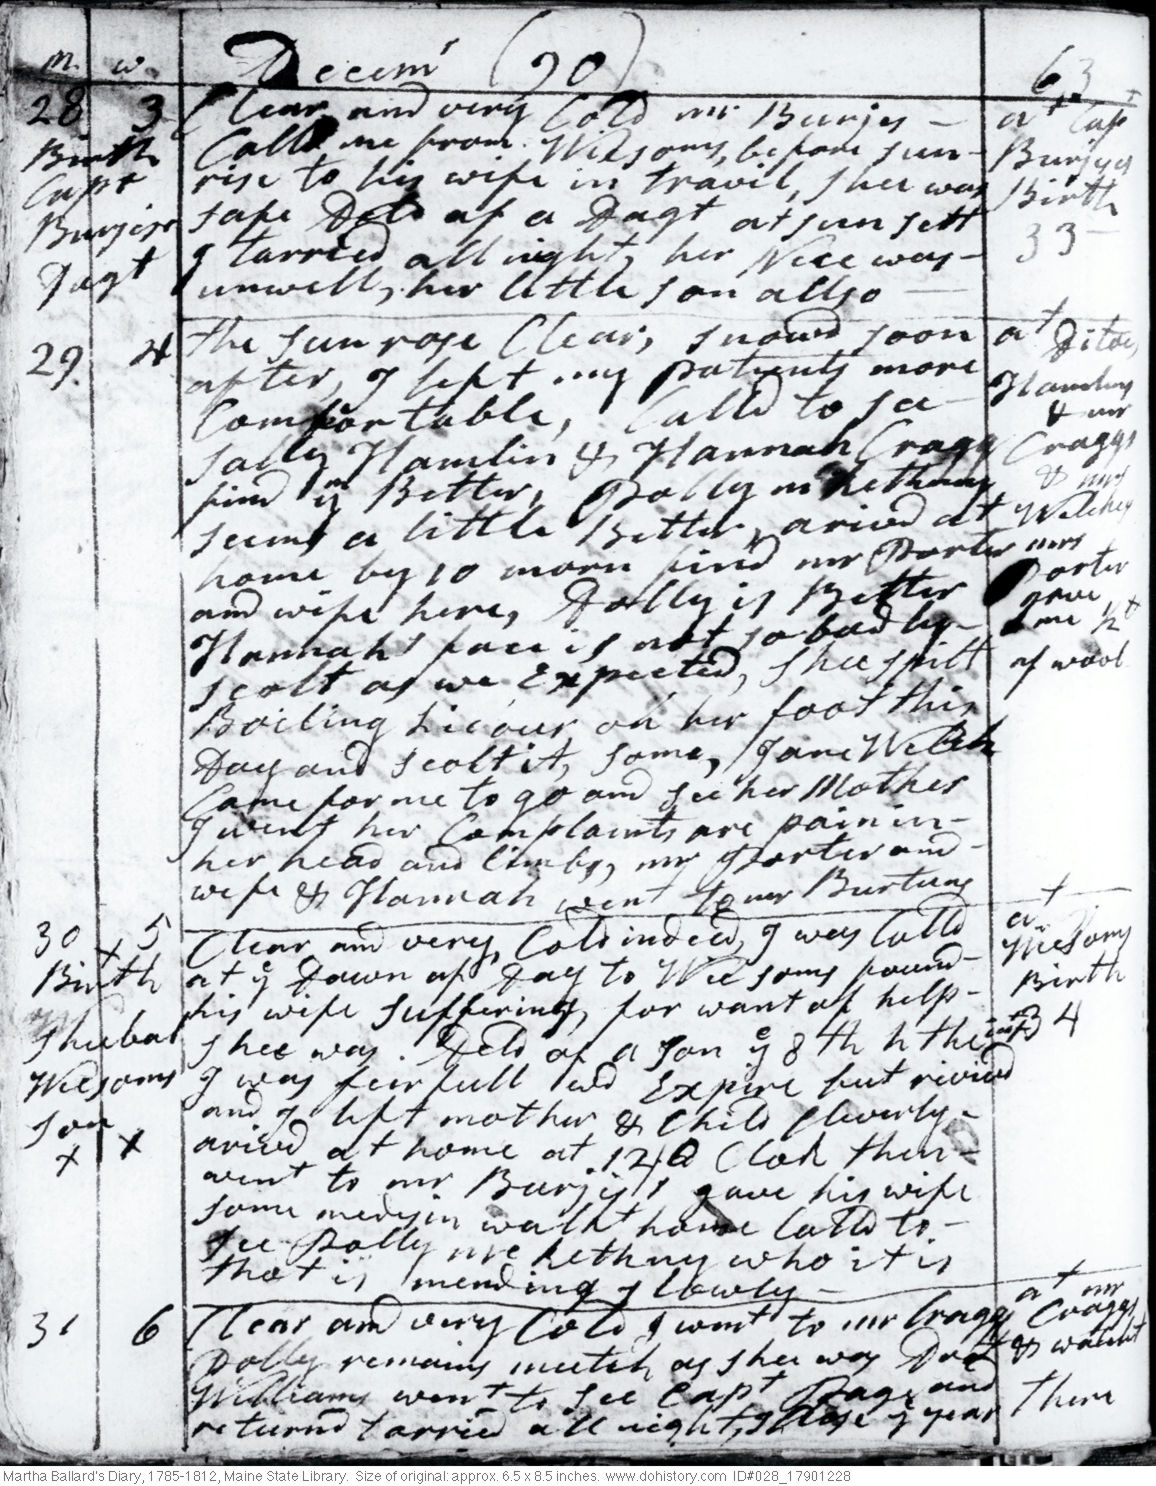 m. w. Decemr (90) 63
28 3 Clear and very Cold mr Burjes — at Capt
Birth Calld me from Wilsoms, before sun- Burjess
Capt rise to his wife in Travil, shee was Birth
Burjess safe Deld of a Dagt at sun sett 33 —
Dagt I tarried all night, her Nece was—
unwell, her little son allso —
29 4 the sun rose Clear, snowd soon at Ditoes,
after, I left my patients more Hamlins
Comfortable, Calld to see & mr
Sally Hamlin & Hannah Cragg Craggs
find ym Better, Polly mc Kethny & mrs
seems a little Better, arivd at Welches
home by 10 morn find mr Porter mrs
and wife here, Dolly is Better Porter
Hannahs face is not so bad ly— gave
scolt as we Expected, shee spilt me
Boiling licour on her foot this of wool
Day and scolt it, some, Jane Welch
Came for me to go and see her Mother
I went her Complaints are pain in—
her head and limbs, mr Porter and—
wife & Hannah went to mr Burtuns
30 x 5 Clear and very, Cold indeed, I was Calld at
Birth at ye Dawn of Day to Wilsoms found— Wilsoms
his wife suffering, for want of help— Birth
Shubal shee was. Deld of a son ye 8th h the inft 34
Wilsoms I was fearfull wd Expire but rivivd
son and I left mother & Child Cleverly—
x x arivd at home at 12 O Clock then—
went to mr Burjess gave his wife
some medisin walkt home Calld to—
see Polly mc Kethny who it is
that is mending slowly —
31 6 Clear and very Cold I went to mr Craggs at mr Craggs
Polly remains much as shee was Doct & watcht
Williams went to see Capt Page and there
returnd tarried all night, Close ye year
Martha Ballard's Diary, 1785-1812, Maine State Library. Size of original: approx. 6.5 x 8.5 inches. www.dohistory.com ID#028_17901228